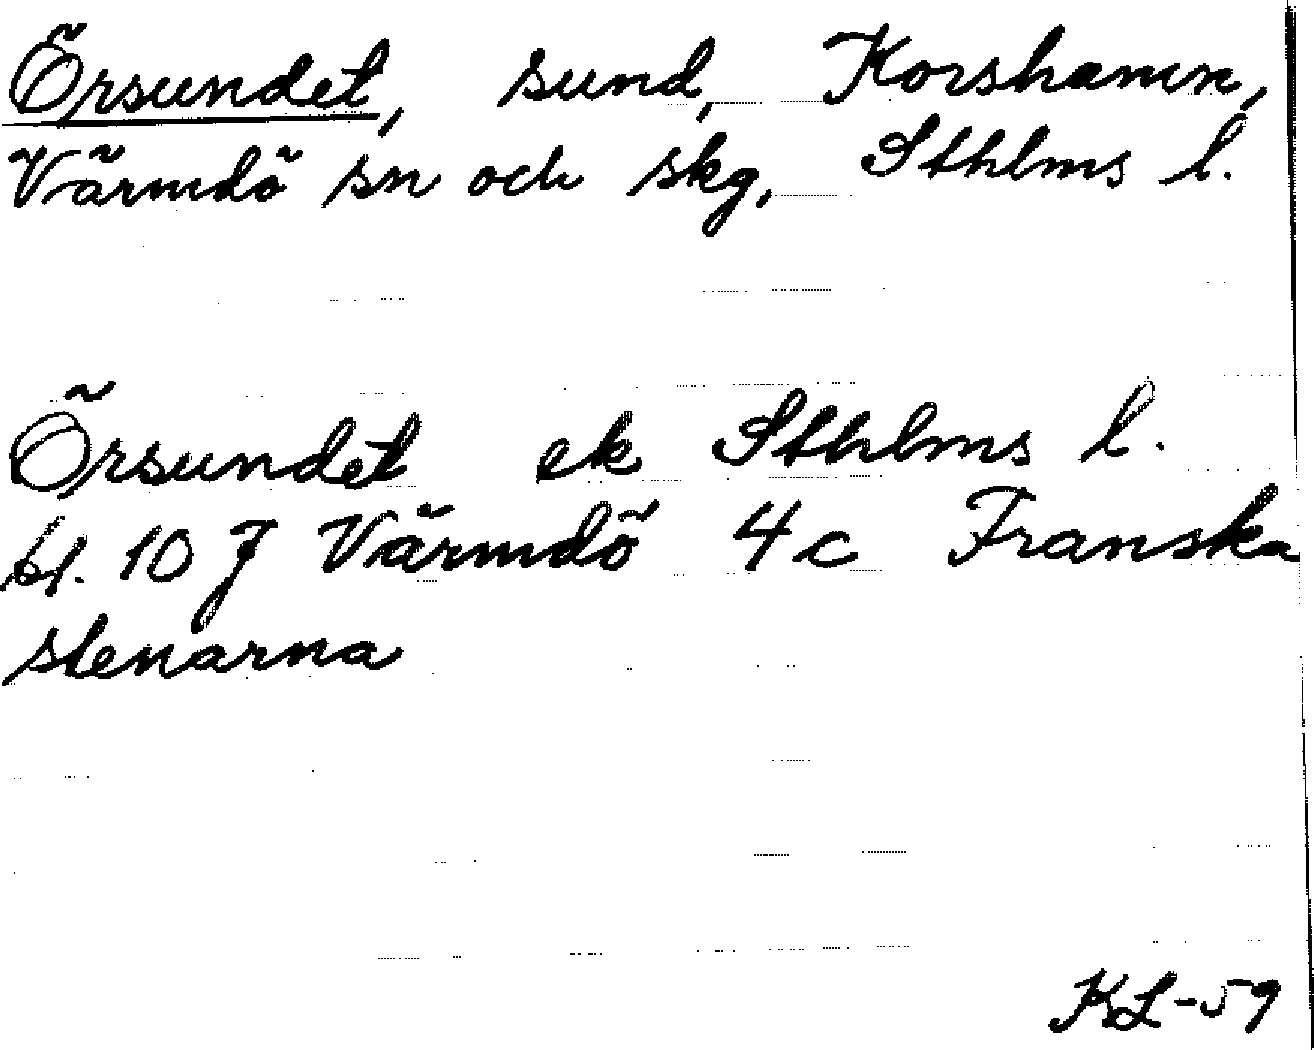 Örsundet, sund, Korshamn,
Värmdö sn och skg, Sthlms l.
Örsundet ek Sthlms l.
bl. 10 J Värmdö 4c Franska
stenarna
KL-59